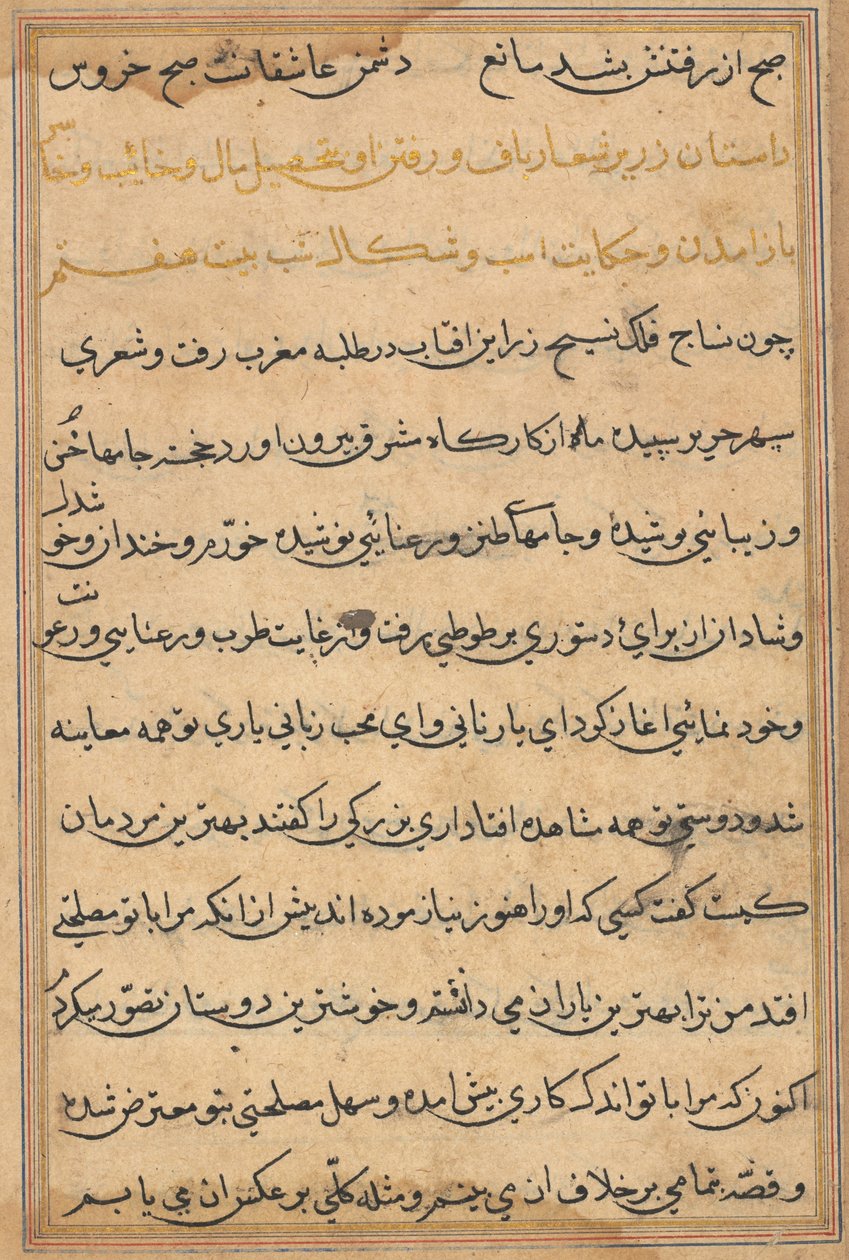 صبح از رفتنش بشد مانع دشمن عاشقانست صبح خروس
داستان زریر شعارباف و رفتن او بتحصیل مال و خائب و خاسر
باز امدن و حکایت اسب و شکال شب بیست هفتم
چون نساج فلک نسیج زراین افتاب در طلبه مغرب رفت و شعري
سپهر حریر سپیده ماه از کارکاه مشرق بیرون اورد خجسته جامهاخنی
و زیبائي بوشیده و جامهاے طنز و رعنائي نوشیده خورّم و خندان و خوشدل
و شادان از براي دستوري بر طوطي برفت و از غایت طرب و رعنایي و رعونت
و خود نمائي اغاز کرد اي یار ناني و اي محب زباني یاري تو همه معاینه
شد و دوستي تو همه مشاهده افتاد اري بزرکي را کفتند بهترین مردمان
کیست کفت کسي که او را هنوز نیازموده اند بیش از انکه مرا با تو مصلحتے
افتد من ترا بهترین یاران مي دانستم و خوشترین دوستان تصوّر میکردم
اکنون که مرا با تو اندک کاري بیش امده و سهل مصلحتي بتو معترض شده
و قصّه بتمامي بر خلاف ان مي بینم و مثله کلّي بر عکس ان مي یابم